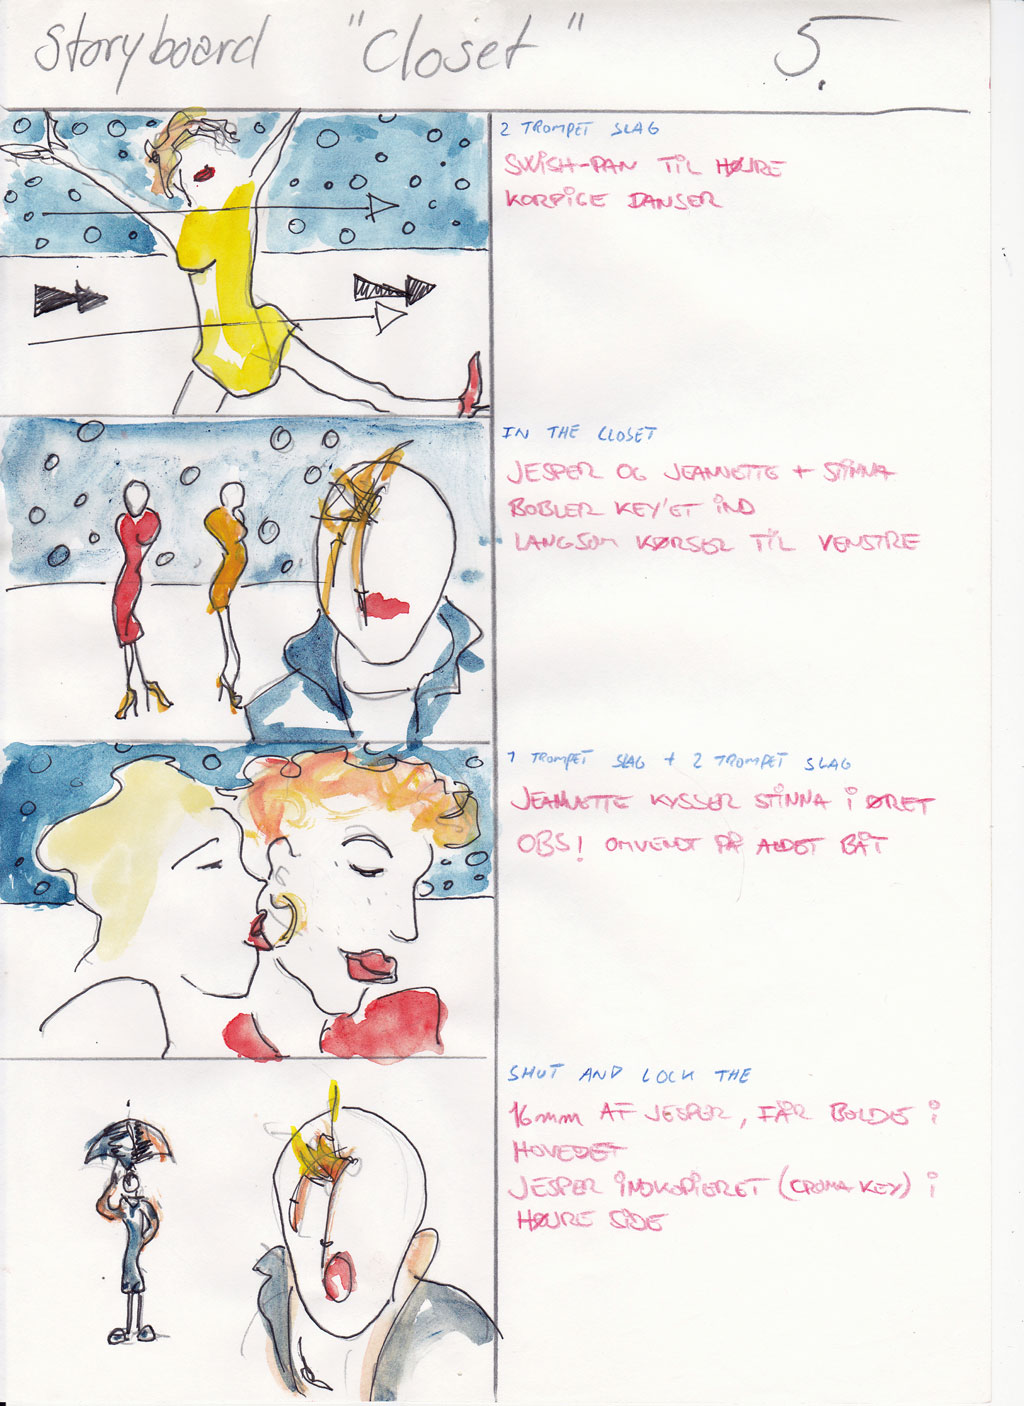 Storyboard "Closet" 5.
2 TROMPET SLAG
SWISH-PAN TIL HØJRE
KORPIGE DANSER
IN THE CLOSET
JESPER OG JEANNETTE + STINNA
BOBLER KEY'ET IND
LANGSOM KØRSEL TIL VENSTRE
1 TROMPET SLAG + 2 TROMPET SLAG
JEANNETTE KYSSER STINNA i ØRET
OBS! OMVENDT PÅ
SHUT AND LOCK THE
16mm AF JESPER, FÅR BOLDE i
HOVEDET
JESPER INDKOPIERET (CROMA KEY) i
HØJRE SIDE